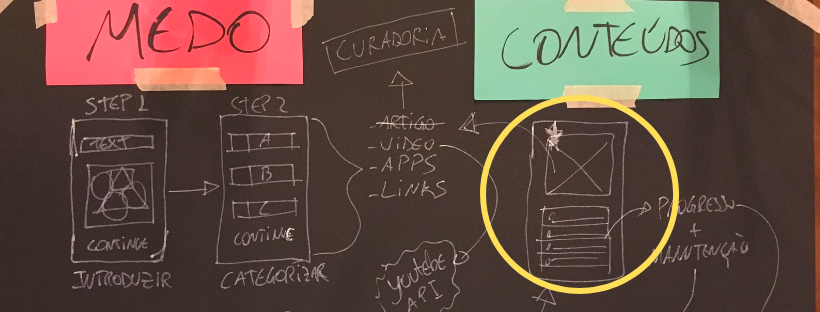 MEDO
CONTEÚDOS
CURADORIA
STEP 1
TEXT
CONTINUE
INTRODUZIR
STEP 2
A
B
C
CONTINUE
CATEGORIZAR
- ARTIGO
- VIDEO
- APPS
- LINKS
youtube
API
PROGRESSO
+
MANUTENÇÃO